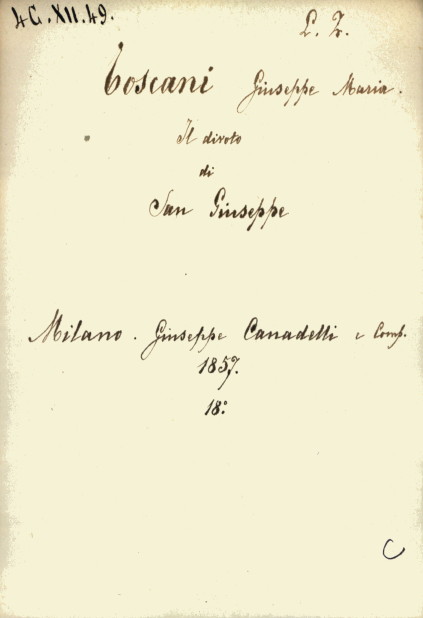 4G.XII.49.
L. Z.
Toscani Giuseppe Maria.
Il divoto
di
San Giuseppe
Milano. Giuseppe Canadelli e Comp.
1857.
18.°
C